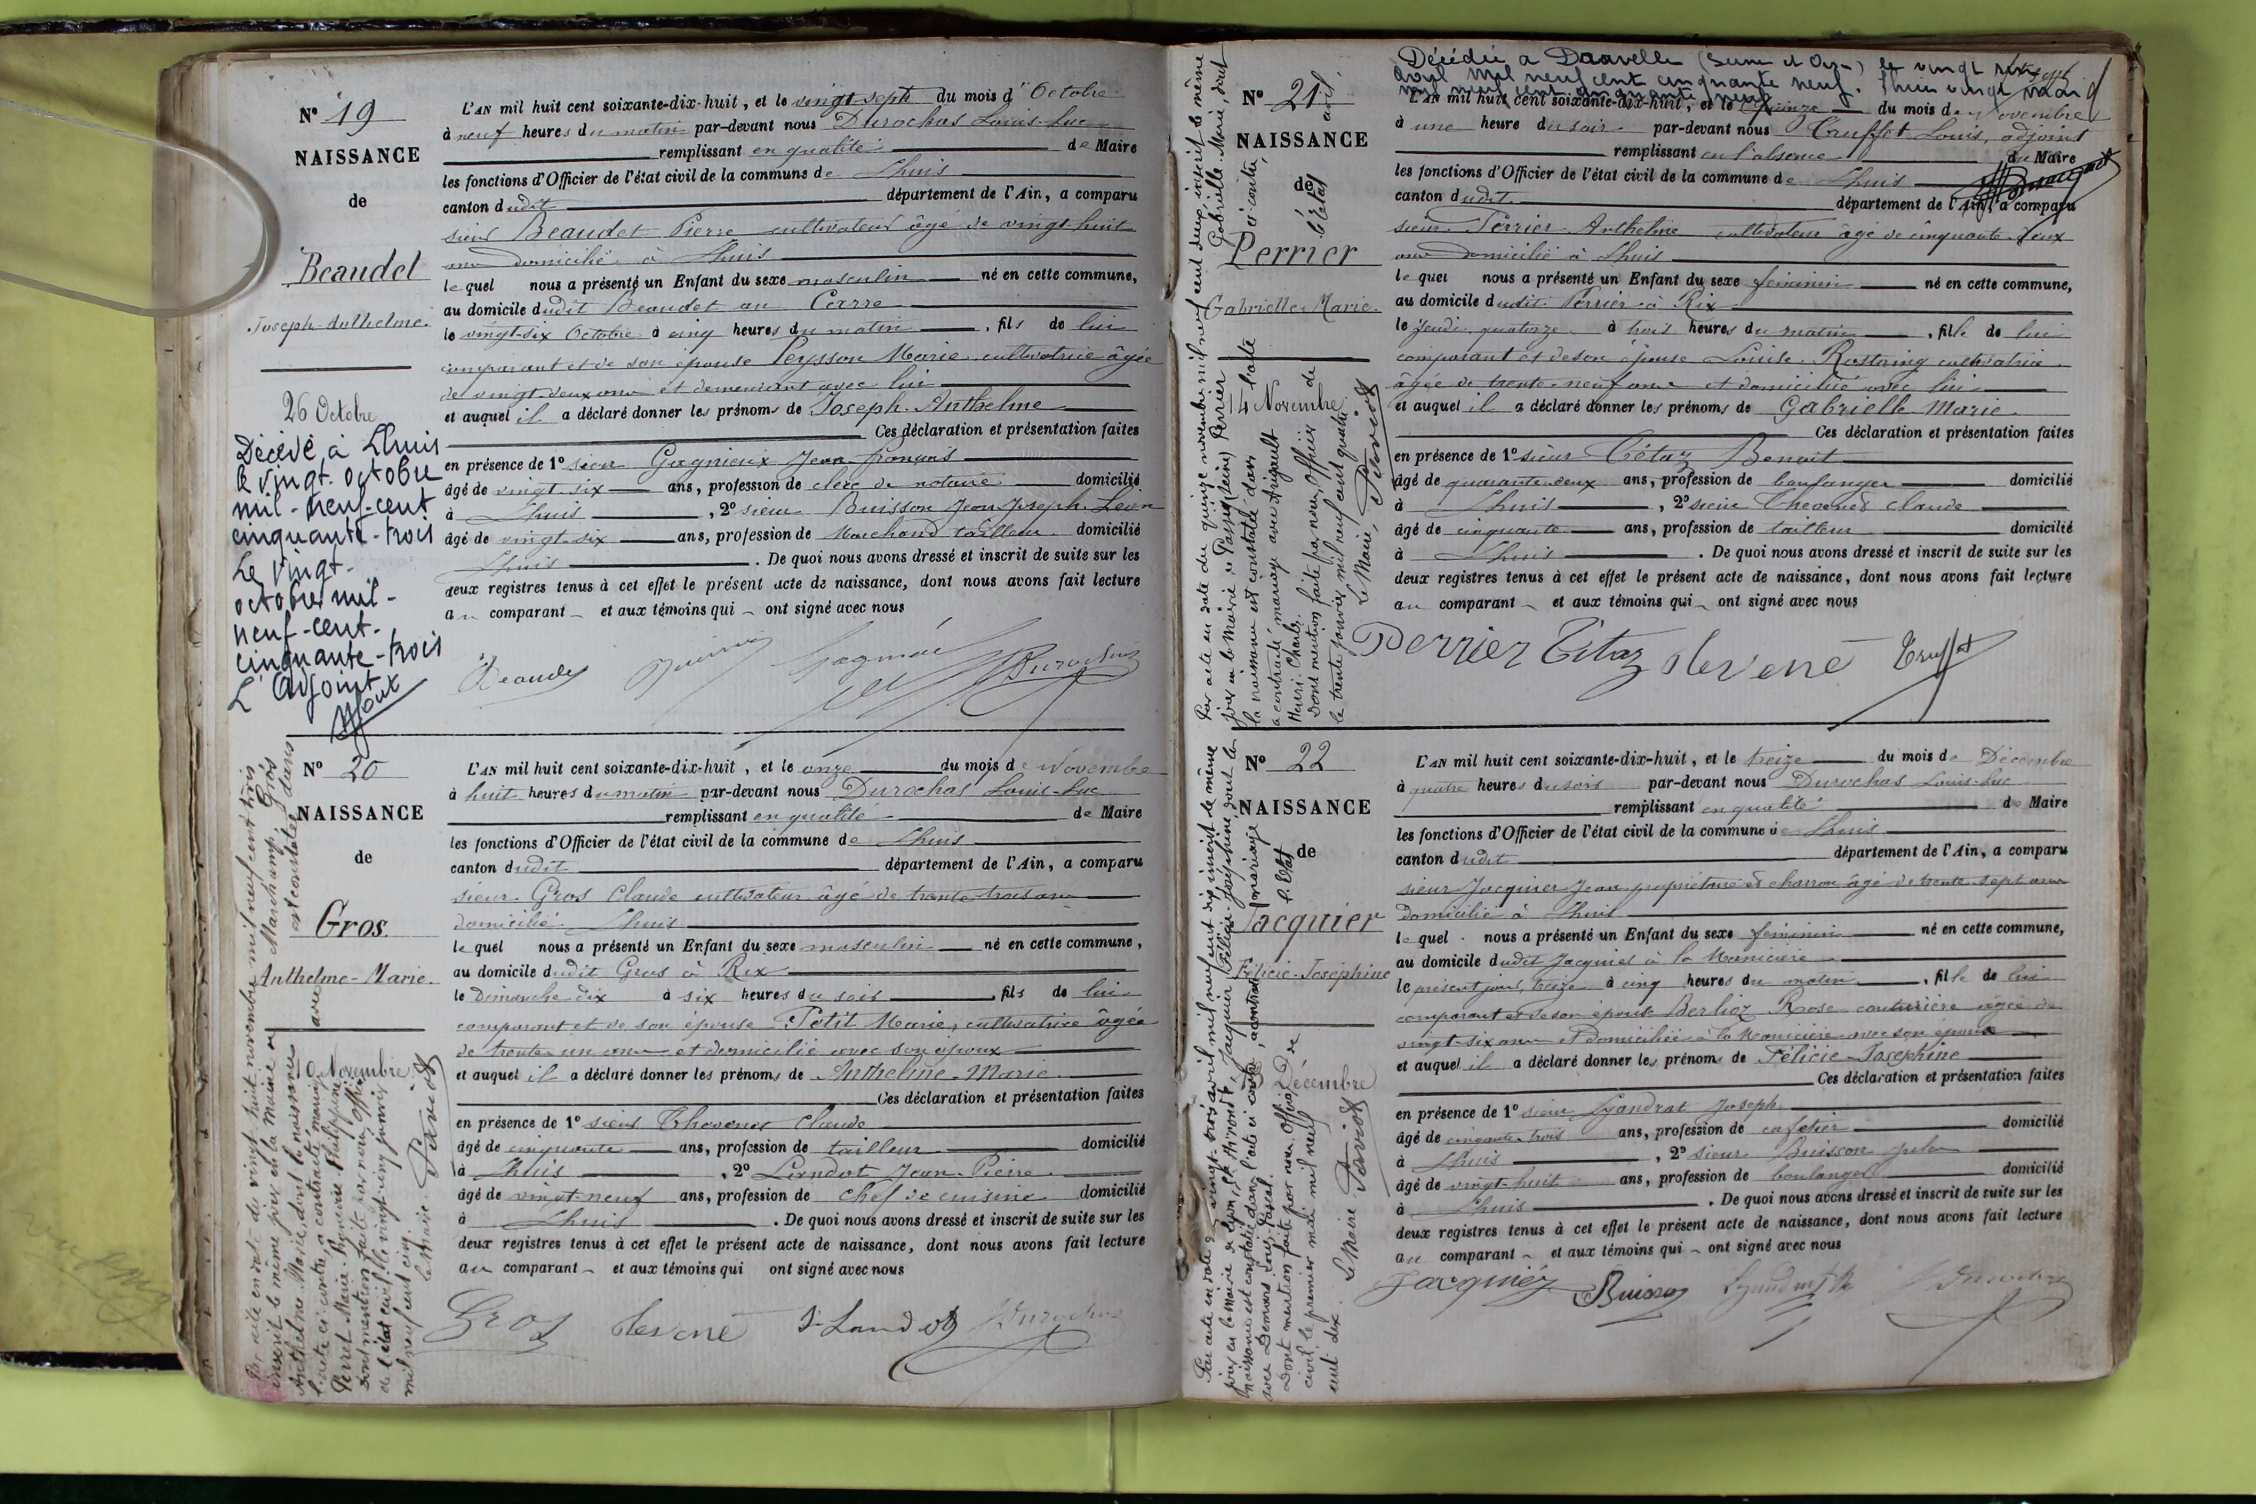 N° 19
NAISSANCE
de
Beaudet
Joseph-Anthelme.
26 Octobre
Décédé à Lhuis
le vingt octobre
mil-neuf-cent
cinquante-trois
Le vingt-
octobre mil-
neuf-cent-
cinquante-trois
L'Adjoint
L'AN mil huit cent soixante-dix-huit, et le vingt-sept du mois d'Octobre
à neuf heures du matin par-devant nous Durochas Louis-Luc
remplissant en qualité de Maire
les fonctions d'Officier de l'état civil de la commune de Lhuis
canton dudit département de l'Ain, a comparu
sieur Beaudet Pierre cultivateur âgé de vingt huit
ans domicilié à Lhuis
lequel nous a présenté un Enfant du sexe masculin né en cette commune,
au domicile dudit Beaudet au
le vingt-six Octobre à cinq heures du matin, fils de lui
comparant et de son épouse Peysson Marie cultivatrice âgée
de vingt-deux ans et demeurant avec lui
et auquel il a déclaré donner les prénoms de Joseph-Anthelme
Ces déclaration et présentation faites
en présence de 1° sieur Gagnieux Jean françois
âgé de vingt-six ans, profession de clerc de notaire domicilié
à Lhuis, 2° sieur Buisson Jean-Joseph-Léon
âgé de vingt-six ans, profession de Marchand tailleur domicilié
Lhuis. De quoi nous avons dressé et inscrit de suite sur les
deux registres tenus à cet effet le présent acte de naissance, dont nous avons fait lecture
au comparant et aux témoins qui ont signé avec nous
N° 20
NAISSANCE
de
Gros
Anthelme-Marie.
10 Novembre
Par acte en date du vingt huit novembre mil neuf cent trois
inscrit le même jour en la Mairie de Marchamp, Gros
Anthelme Marie, dont la naissance est constatée dans
l'acte ci contre, a contracté mariage avec
Perret Marie Philippine
Dont mention faite par nous, officier
de l'état civil, le vingt-cinq janvier
mil neuf cent cinq.
le Maire.
L'AN mil huit cent soixante-dix-huit, et le onze du mois de Novembre
à huit heures du matin par-devant nous Durochas Louis-Luc
remplissant en qualité de Maire
les fonctions d'Officier de l'état civil de la commune de Lhuis
canton dudit département de l'Ain, a comparu
sieur Gros Claude cultivateur âgé de trente-trois ans
domicilié Lhuis
lequel nous a présenté un Enfant du sexe masculin né en cette commune,
au domicile dudit Gros à Rix
le Dimanche dix à six heures du soir, fils de lui
comparant et de son épouse Petit Marie, cultivatrice âgée
de trente un ans et domicilié avec son époux
et auquel il a déclaré donner les prénoms de Anthelme-Marie
Ces déclaration et présentation faites
en présence de 1° sieur Thevenet Claude
âgé de cinquante ans, profession de tailleur domicilié
à Lhuis, 2° Landot Jean-Pierre
âgé de vingt-neuf ans, profession de chef de cuisine domicilié
à Lhuis. De quoi nous avons dressé et inscrit de suite sur les
deux registres tenus à cet effet le présent acte de naissance, dont nous avons fait lecture
au comparant et aux témoins qui ont signé avec nous
Gros
N° 21
NAISSANCE
de
Perrier
Gabrielle-Marie.
14 Novembre
Par acte en date du quinze novembre mil neuf cent deux, inscrit le même
jour en la Mairie de Perrier Gabrielle Marie, dont
la naissance est constatée dans l'acte ci contre,
a contracté mariage avec
Henri Charles.
Dont mention faite par nous, Officier de l'état civil,
le trente janvier mil neuf cent quatre
Le Maire,
Décédée à
avril mil neuf cent cinquante neuf.
L'AN mil huit cent soixante-dix-huit, et le quinze du mois de Novembre
à une heure du soir par-devant nous Truffet Louis, adjoint
remplissant en l'absence du Maire
les fonctions d'Officier de l'état civil de la commune de Lhuis
canton dudit département de l'Ain, a comparu
sieur Perrier Anthelme cultivateur âgé de cinquante deux
ans domicilié à Lhuis
lequel nous a présenté un Enfant du sexe féminin né en cette commune,
au domicile dudit Perrier à Rix
le Jeudi quatorze à trois heures du matin, fille de lui
comparant et de son épouse Louise Rostaing cultivatrice
âgée de trente-neuf ans et domiciliée avec lui
et auquel il a déclaré donner les prénoms de Gabrielle Marie
Ces déclaration et présentation faites
en présence de 1° sieur Tétaz Benoit
âgé de quarante-deux ans, profession de boulanger domicilié
à Lhuis, 2° sieur Thevenet Claude
âgé de cinquante ans, profession de tailleur domicilié
à Lhuis. De quoi nous avons dressé et inscrit de suite sur les
deux registres tenus à cet effet le présent acte de naissance, dont nous avons fait lecture
au comparant et aux témoins qui ont signé avec nous
Perrier Tétaz Truffet
N° 22
NAISSANCE
de
Jacquier
Félicie-Joséphine
13 Décembre
Par acte en date du vingt-trois avril mil neuf cent dix inscrit le même
jour en la Mairie de Lyon, Jacquier Félicie Joséphine, dont la
naissance est constatée dans l'acte ci contre, a contracté mariage
avec
Dont mention faite par nous, Officier de l'état
civil, le premier mai mil neuf
cent dix. Le Maire
L'AN mil huit cent soixante-dix-huit, et le treize du mois de Décembre
à quatre heures du soir par-devant nous Durochas Louis-Luc
remplissant en qualité de Maire
les fonctions d'Officier de l'état civil de la commune de Lhuis
canton dudit département de l'Ain, a comparu
sieur Jacquier Jean propriétaire et charron âgé de trente-sept ans
domicilié à Lhuis
lequel nous a présenté un Enfant du sexe féminin né en cette commune,
au domicile dudit Jacquier à la
le présent jour, treize à cinq heures du matin, fille de lui
comparant et de son épouse Berlioz Rose couturière âgée de
vingt-six ans et domiciliée à la avec son époux
et auquel il a déclaré donner les prénoms de Félicie-Joséphine
Ces déclaration et présentation faites
en présence de 1° sieur Lyandrat Joseph
âgé de cinquante-trois ans, profession de cafetier domicilié
à Lhuis, 2° sieur Buisson
âgé de vingt-huit ans, profession de boulanger domicilié
à Lhuis. De quoi nous avons dressé et inscrit de suite sur les
deux registres tenus à cet effet le présent acte de naissance, dont nous avons fait lecture
au comparant et aux témoins qui ont signé avec nous
Jacquier Buisson